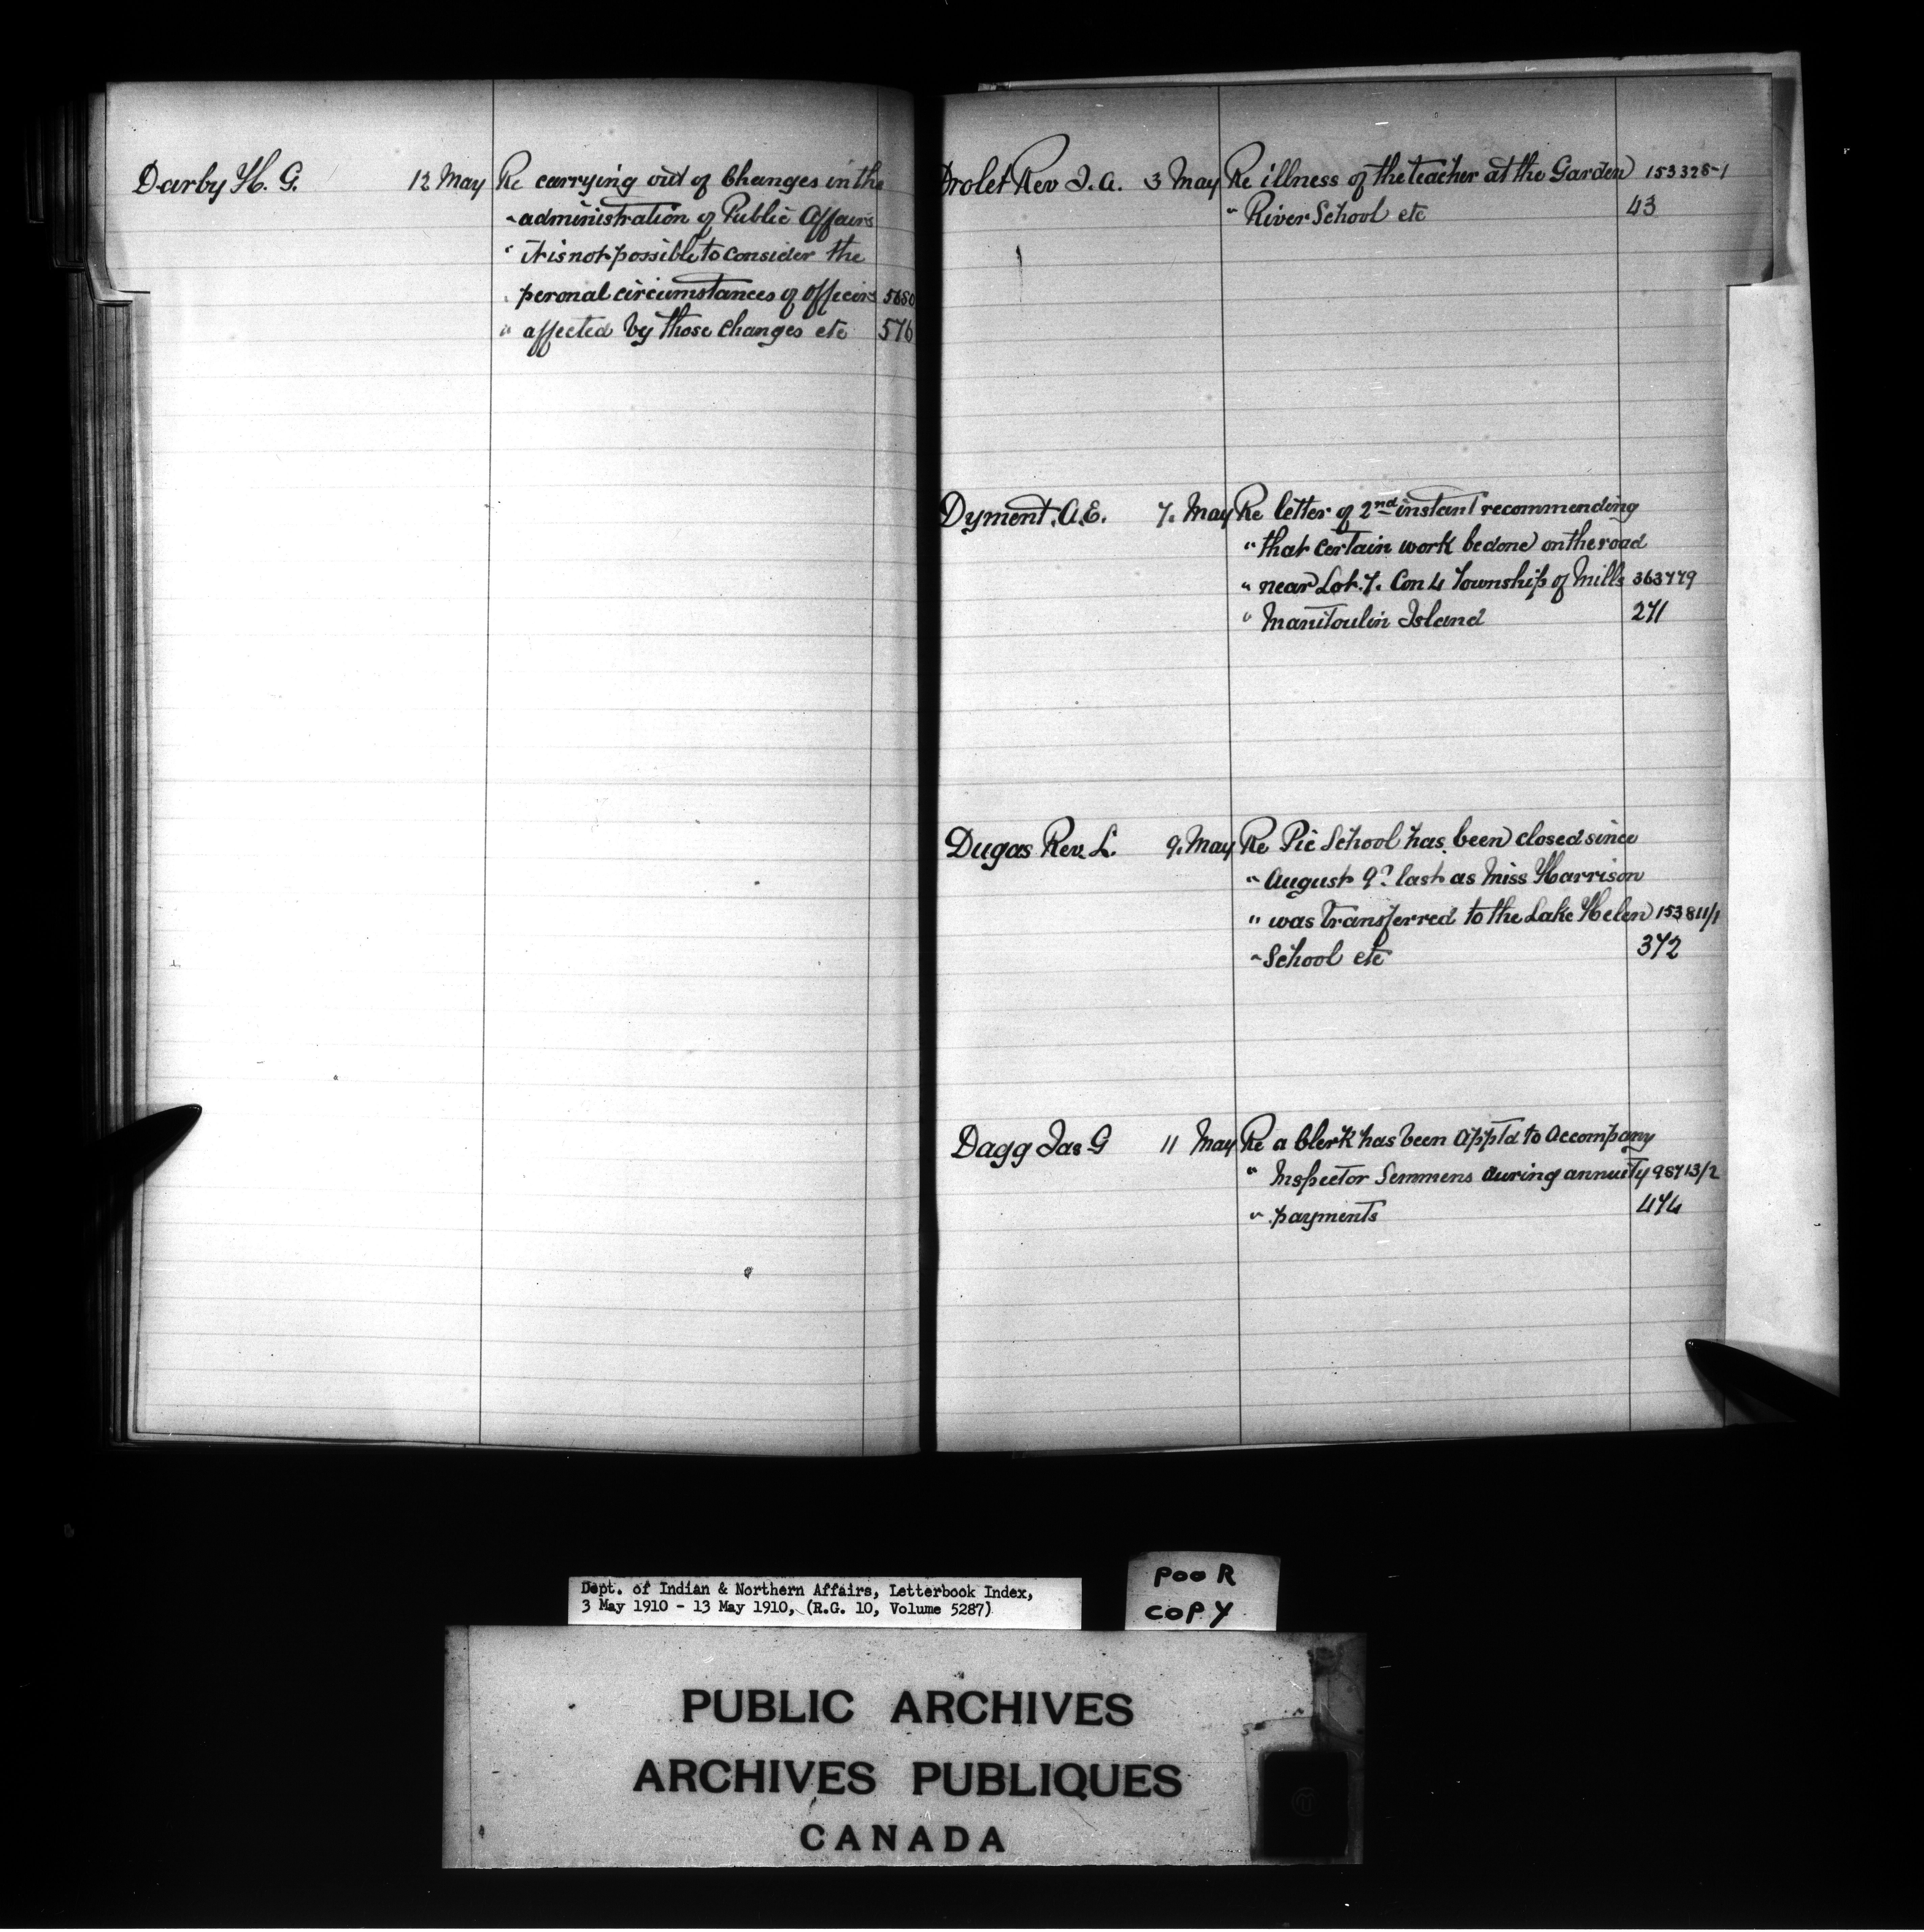 Darby H. G. 12 May Re carrying out of Changes in the
" administration of Public Affairs
" it is not possible to consider the
" peronal circumstances of officers
" affected by those changes etc 576
Drolet Rev J. A. 3 May Re illness of the teacher at the Garden 153328-1
" River School etc 43
Dyment. A. E. 7. May Re letter of 2nd instant recommending
" that certain work be done on the road
" near Lot. 7. Con 4 Township of Mills 363779
" Manitoulin Island 271
Dugas Rev. L. 9. May Re Pic School has been closed since
" August 9? last as Miss Harrison
" was transferred to the Lake Helen 153811/1
" School etc 372
Dagg Jas G 11 May Re a Clerk has been Appt'd to Accompany
" Inspector Semmens during annuity 98713/2
" payments 474
Dept. of Indian & Northern Affairs, Letterbook Index,
3 May 1910 - 13 May 1910, (R.G. 10, Volume 5287)
POOR
COPY
PUBLIC ARCHIVES
ARCHIVES PUBLIQUES
CANADA